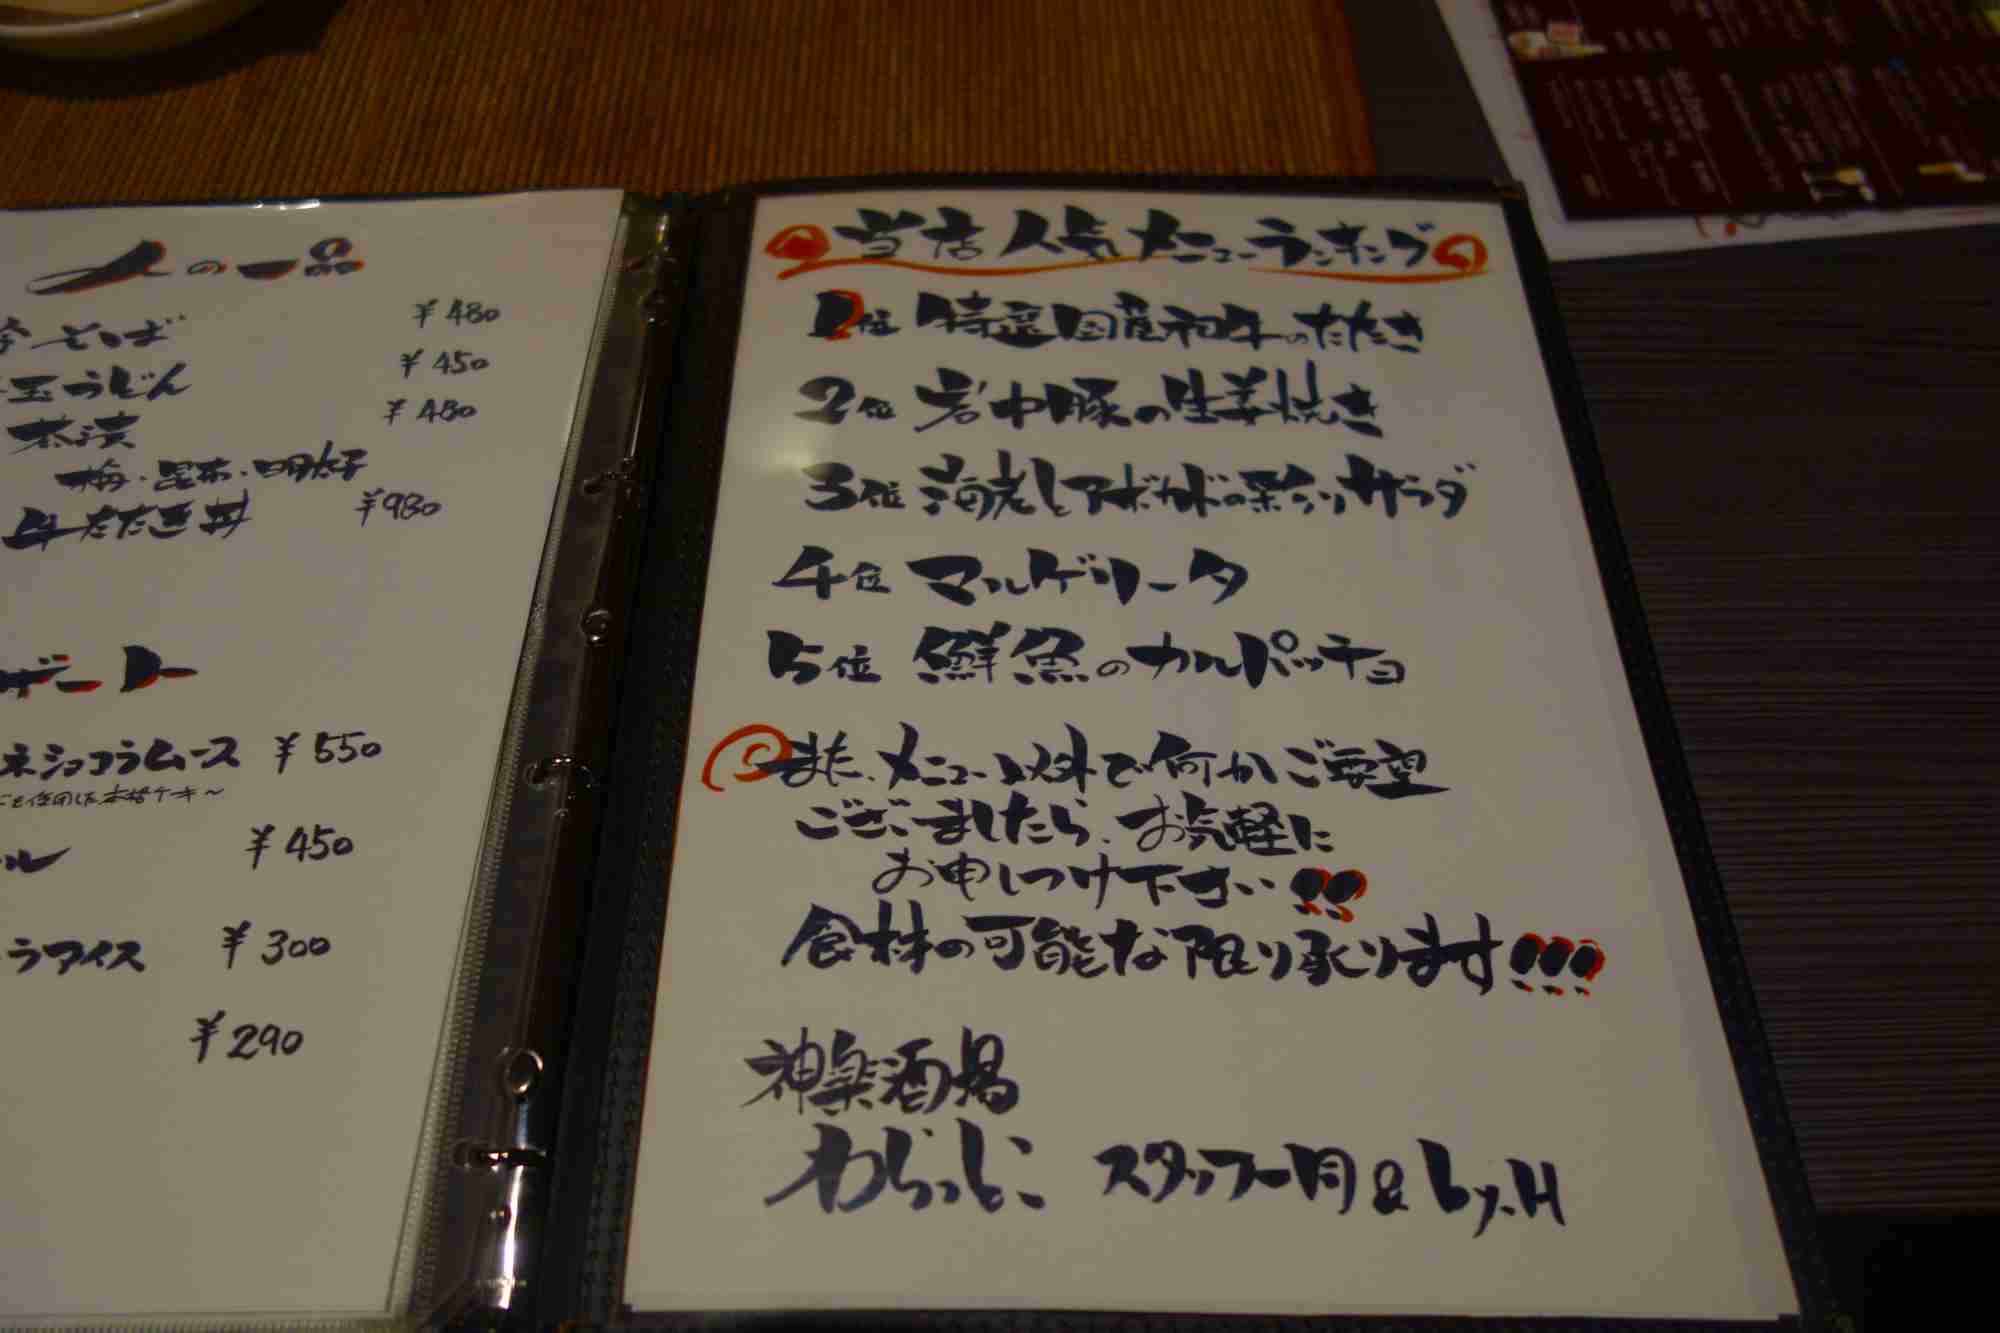 〆の一品
そば ¥480
玉うどん ¥450
茶漬 ¥480
梅・昆布・明太子
牛たたき丼 ¥980
ザート
ネショコラムース ¥550
を使用した本格ケーキ～
ール ¥450
ラアイス ¥300
¥290
当店人気メニューランキング
1位 特選国産和牛のたたき
2位 岩中豚の生姜焼き
3位 海老とアボカドの彩りサラダ
4位 マルゲリータ
5位 鮮魚のカルパッチョ
また、メニュー以外で何かご要望
ございましたら、お気軽に
お申しつけ下さい!!
食材の可能な限り承ります!!!
神楽酒場
わらっとこ スタッフ一同 & by.H